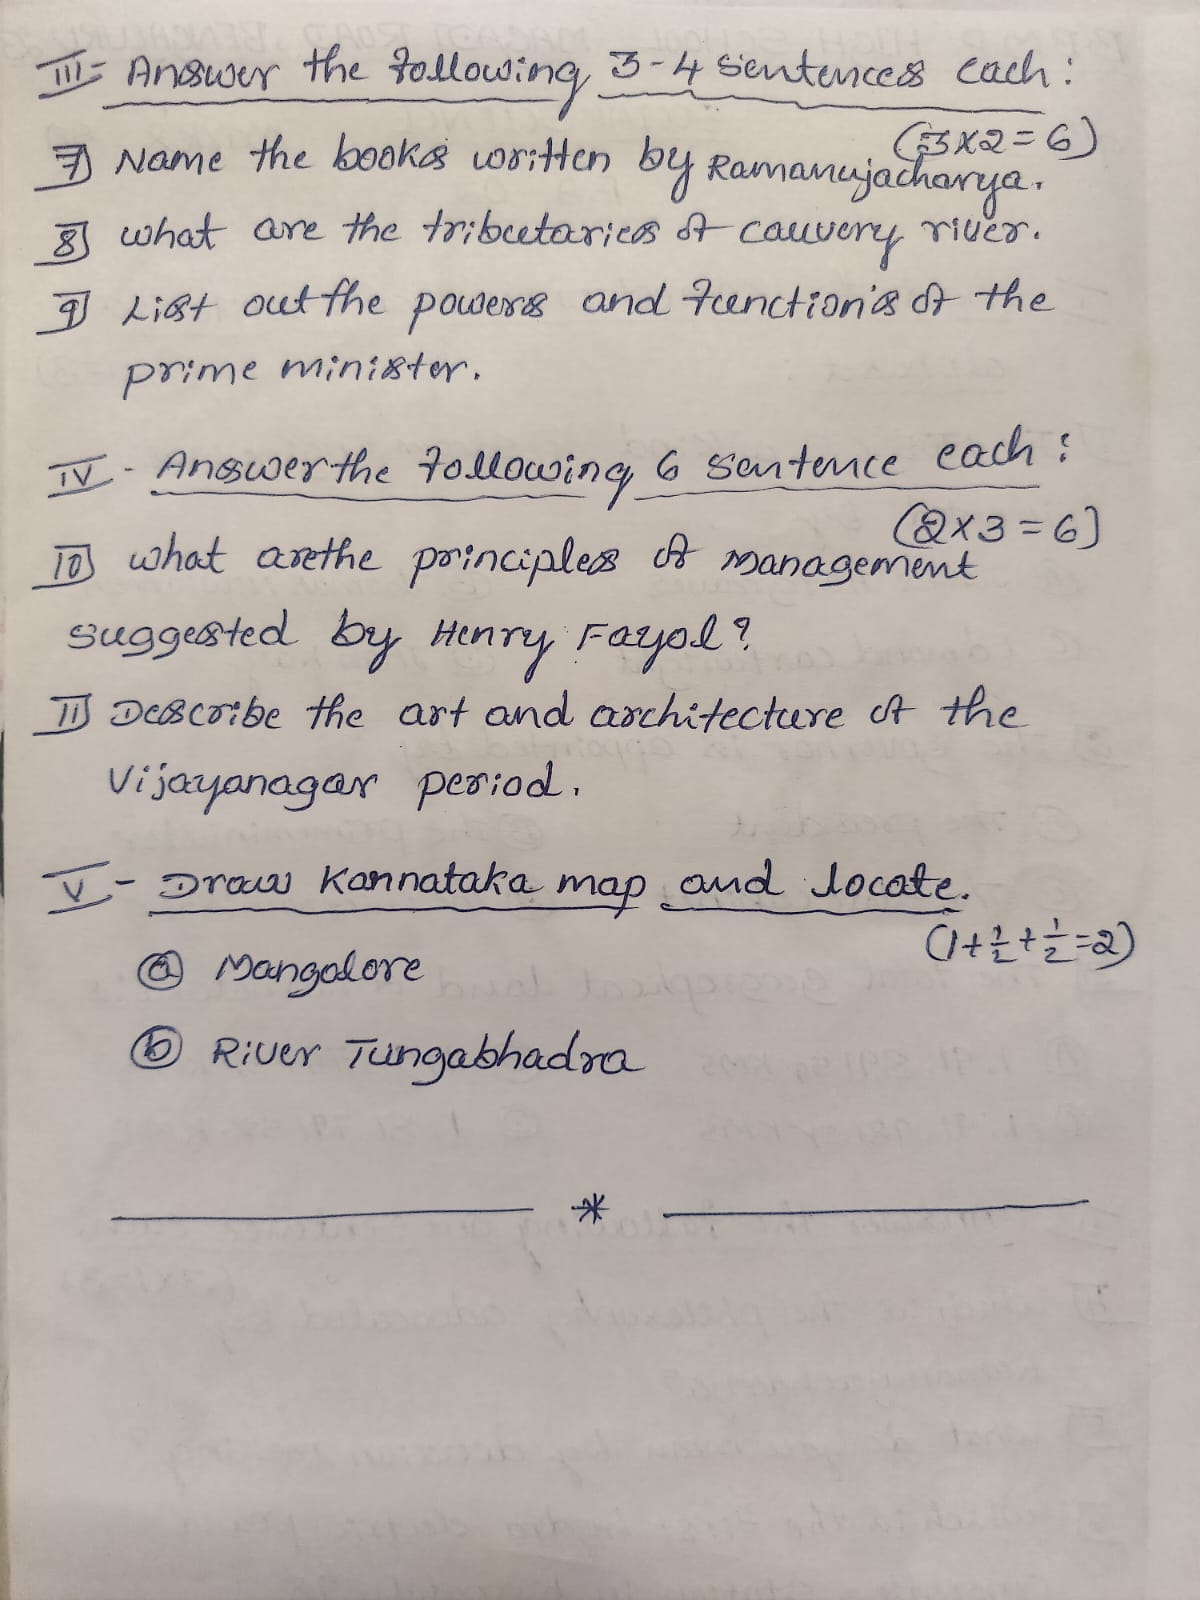 III- Answer the following 3-4 sentences each:
(3x2=6)
7] Name the books written by Ramanujacharya.
8] what are the tributaries of cauvery river.
9] List out the powers and function's of the
prime minister.
IV - Answer the following 6 sentence each:
(2x3=6)
10] what are the principles of management
suggested by Henry Fayol?
11] Describe the art and architecture of the
Vijayanagar period.
V - Draw Karnataka map and locate.
(1+1/2+1/2=2)
(a) Mangalore
(b) River Tungabhadra
*